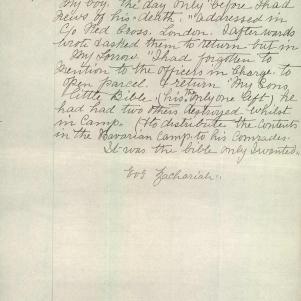 My boy, the day only before I had
news of his death. "Addressed in
C/o Red Cross. London. I afterwards
wrote & asked them to return but in
My sorrow I had forgotten to
mention to the Officers in Charge. to
open parcel & return "My Sons
little Bible (his only one left) he
had had two others destroyed whilst
in Camp. & to distribute the Contents
in the Bavarian Camp to his Comrades.
It was the bible only I wanted.
Zachariah.